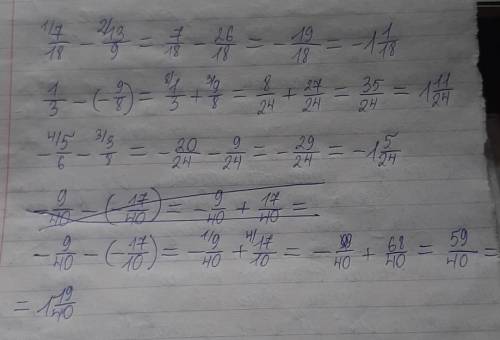 ¹/7/18 − ²/13/9 = 7/18 − 26/18 = − 19/18 = −1 1/18
1/3 − (− 9/8) = ⁸/1/3 + ³/9/8 = 8/24 + 27/24 = 35/24 = 1 11/24
− ⁴/5/6 − ³/3/8 = − 20/24 − 9/24 = − 29/24 = −1 5/24
− 9/40 − (− 17/40) = − 9/40 + 17/40 =
− 9/40 − (− 17/10) = − ¹/9/40 + ⁴/17/10 = − 9/40 + 68/40 = 59/40 =
= 1 19/40